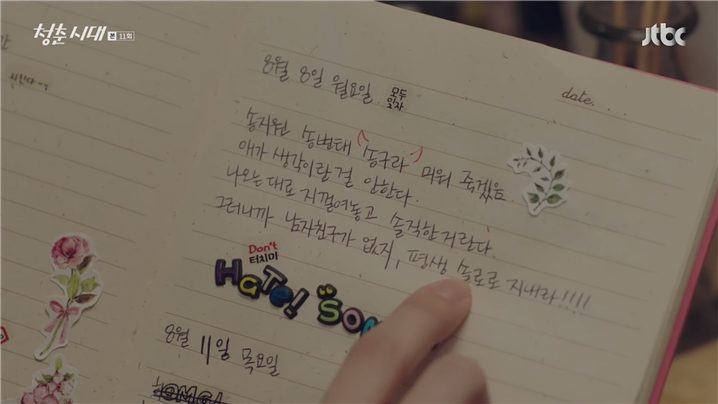 청춘시대 11회
jtbc
date. . . .
8월 8일 월요일 모두 잊자
송지원 송변태 (송구라) 미워 죽겠음.
애가 생각이란걸 안한다.
나오는대로 지껄여놓고 솔직한거란다.
그러니까 남자친구가 없지, 평생 솔로로 지내라!!!!
Don't
터치미
HaTe!
8월 11일 목요일